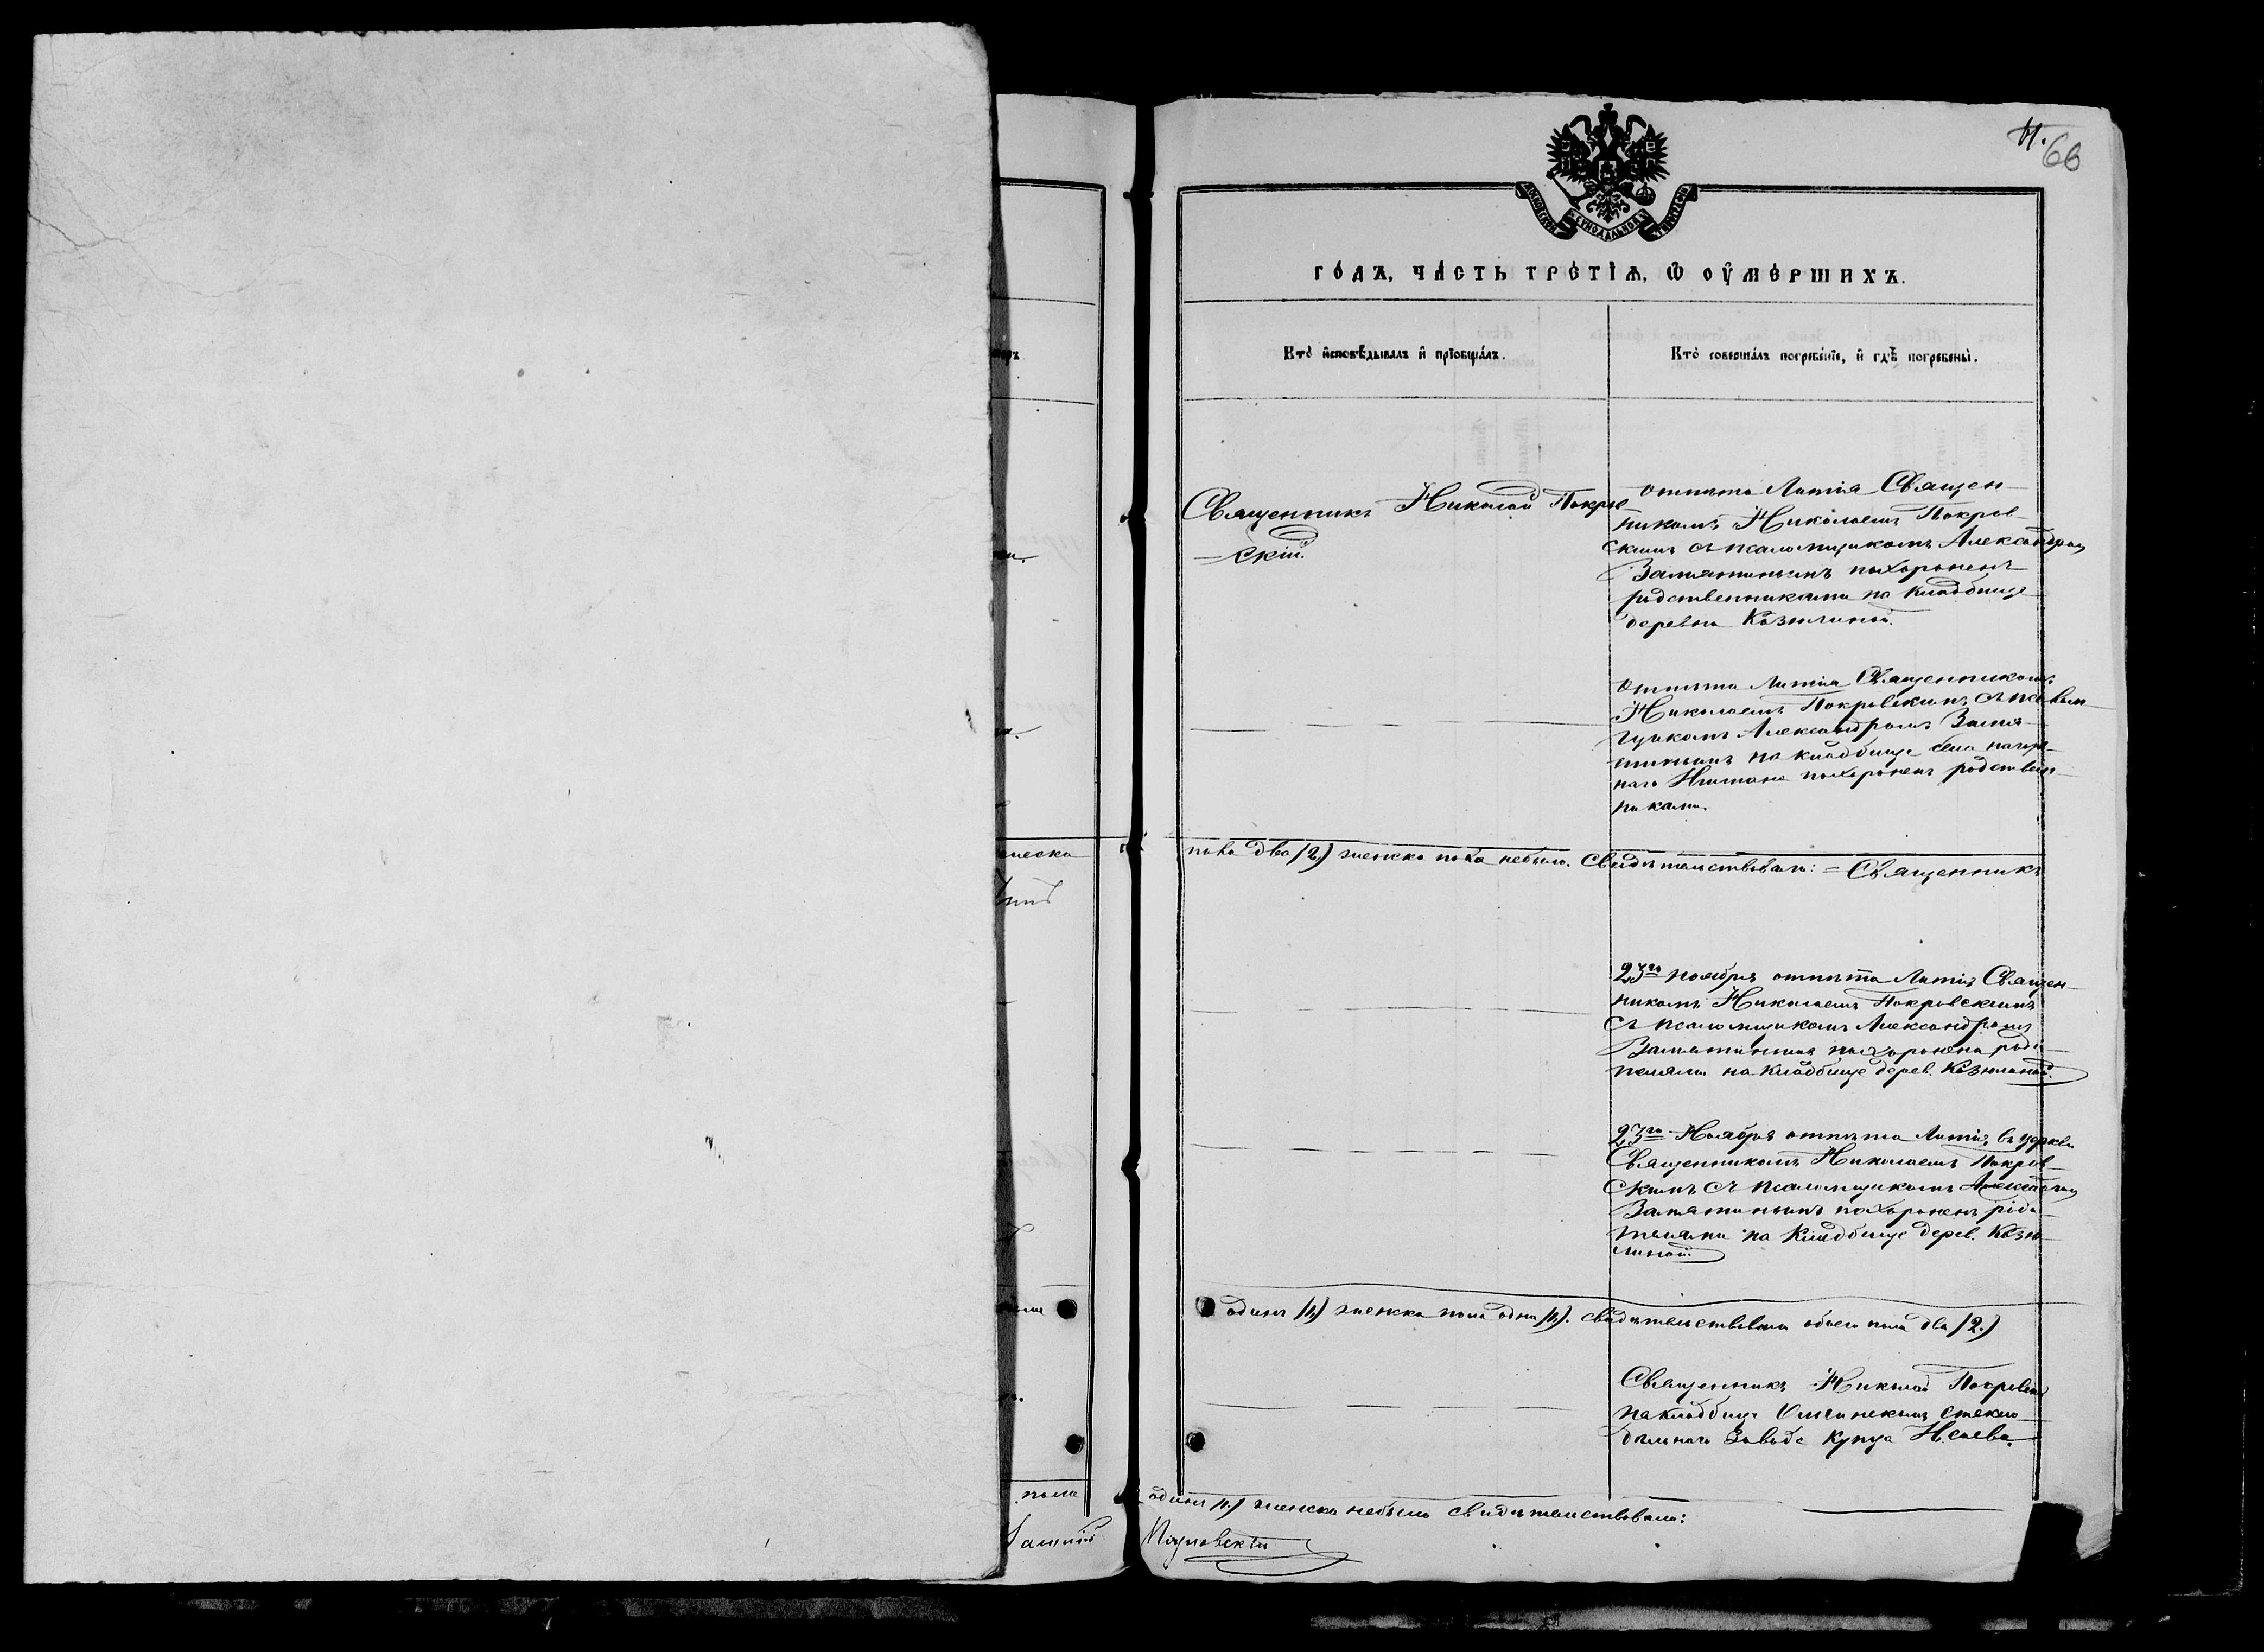 66
МОСКОВСКОЙ СѴНОДАЛЬНОЙ ТИПОГРАФІИ
ГОДЪ, ЧАСТЬ ТРЕТІѦ, Ѡ ОУМЕРШИХЪ.
Кто исповѣдывалъ и прїобщалъ.
Кто совершалъ погребенїе, и гдѣ погребены.
Священникъ Николай Покров-
скій.
отпѣта Литія Священ-
никомъ Николаемъ Покров-
скимъ съ псаломщикомъ Александром
Замятинымъ похороненъ
родственниками на кладбище
деревни Козюлиной.
отпѣта Литія Священникомъ
Николаемъ Покровскимъ съ псалом
щикомъ Александромъ Замя-
тинымъ на кладбище села
похороненъ родствен-
никами.
ческа
пола два (2) женска пола небыло. Свидѣтельствовали: = Священникъ
23го ноября отпѣта Литія Священ-
никомъ Николаемъ Покровскимъ
съ псаломщикомъ Александромъ
Замятинымъ похоронена роди-
телями на кладбище дерев. Козюлиной.
23го Ноября отпѣта Литія въ церкви
Священникомъ Николаемъ Покров-
скимъ съ псаломщикомъ Александром
Замятинымъ похороненъ роди-
телями на кладбище дерев. Козю-
линой.
одинъ (1) женска пола одна (1). свидѣтельствовали обоего пола два (2.)
Священникъ Николай Покровскій
на кладбище стекло
дѣльнаго Завода купца
пола
одинъ (1.) женска небыло свидѣтельствовали: